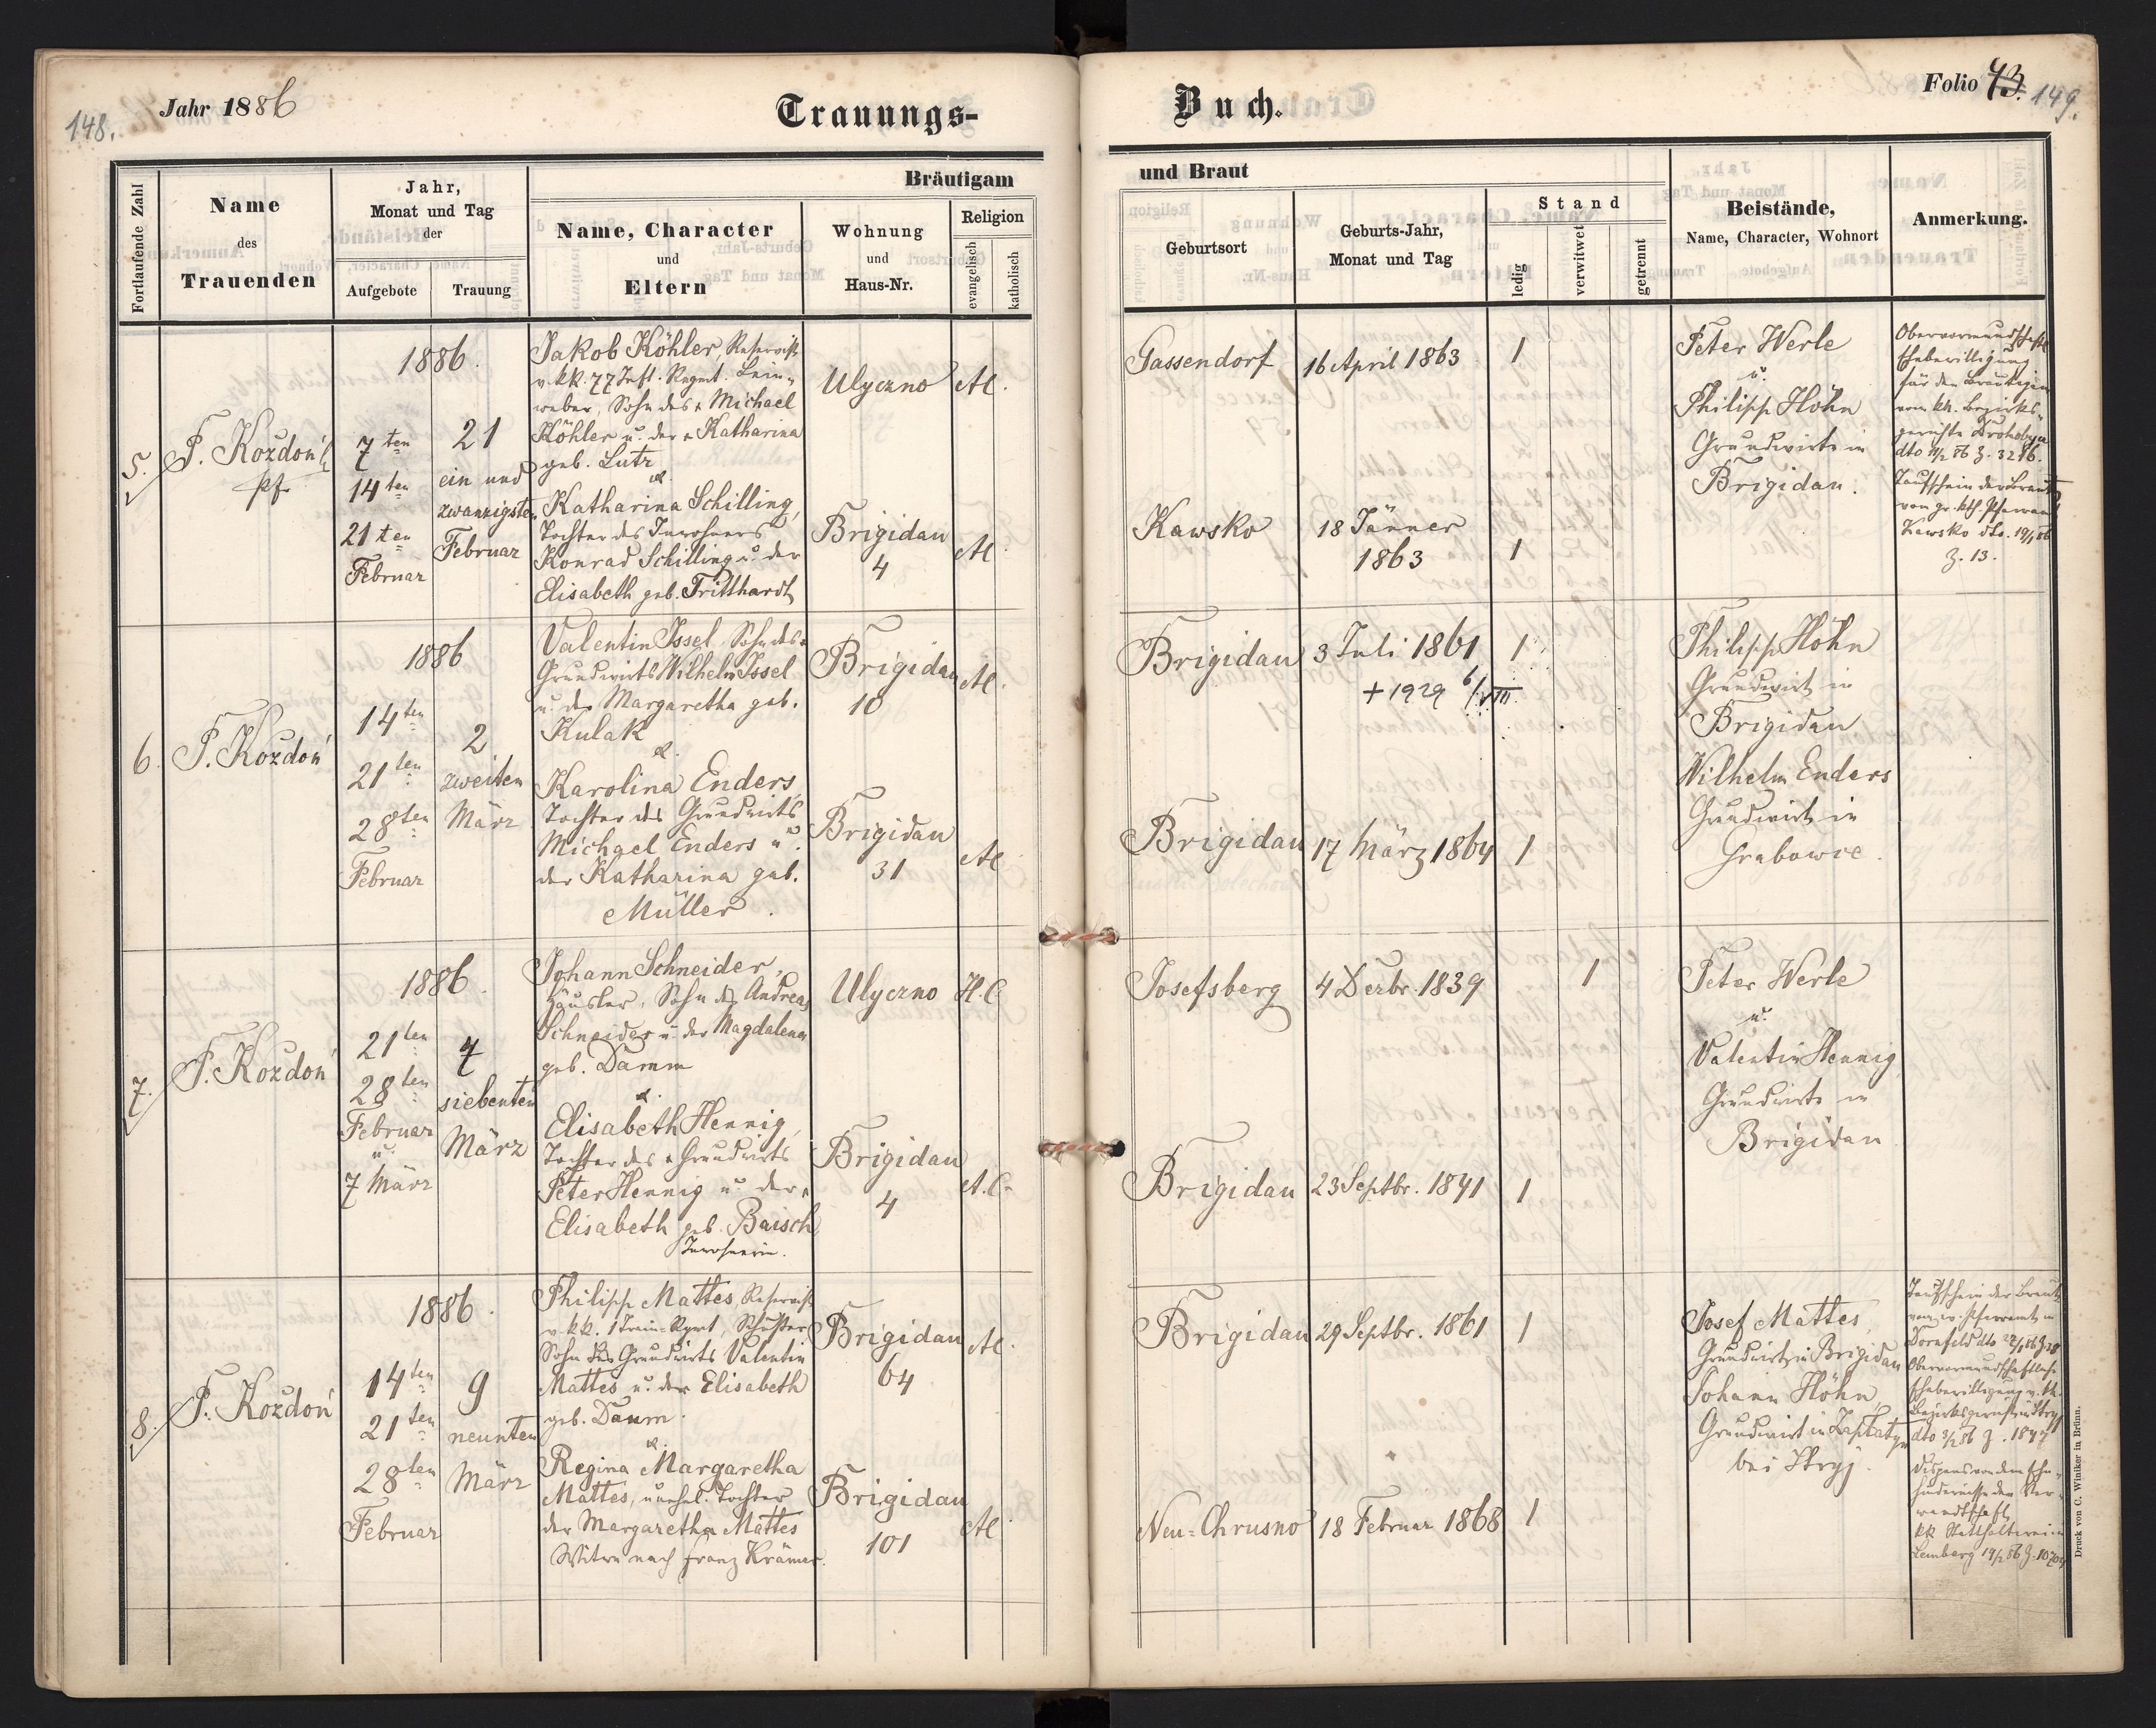 148.
Jahr 1886
Trauungs-
Fortlaufende Zahl
Name
des
Trauenden
Jahr,
Monat und Tag
der
Aufgebote
Trauung
Bräutigam
Name, Character
und
Eltern
Wohnung
und
Haus-Nr.
Religion
evangelisch
katholisch
5.
F. Kozdoń
pf.
1886.
7ten
14ten
21ten
Februar
21
ein und
zwanzigsten
Februar
Jakob Köhler, Reservist
v. kk. 77 Inft. Regmt. Lein-
weber, Sohn des + Michael
Köhler u. der + Katharina
geb. Lutz
&
Katharina Schilling,
Tochter des Inwohners
Konrad Schilling u. der
Elisabeth geb. Tritthardt
Ulyczno
Brigidau
4
AC.
AC
6.
F. Kozdoń
1886
14ten
21ten
28ten
Februar
2
zweiten
März
Valentin Issel, Sohn des
Grundwirts Wilhelm Issel
u. der Margaretha geb.
Kulak
&.
Karolina Enders,
Tochter des Grundwirts
Michael Enders u.
der Katharina geb.
Müller.
Brigidau
10
Brigidau
31
AC.
AC
7.
F. Kozdoń
1886.
21ten
28ten
Februar
u.
7 März
7
siebenten
März
Johann Schneider,
Häusler, Sohn des Andreas
Schneider u. der Magdalena
geb. Damm
&.
Elisabeth Hennig,
Tochter des + Grundwirts
Peter Hennig u. der +
Elisabeth geb. Baisch
Inwohnerin.
Ulyczno
Brigidau
4
H.C.
A.C.
8.
F. Kozdoń
1886.
14ten
21ten
28ten
Februar
9
neunten
März
Philipp Mattes, Reservist
v. kk. 1 Train-Rgmt, Schuster
Sohn des Grundwirts Valentin
Mattes u. der Elisabeth
geb. Daum.
&.
Regina Margaretha
Mattes, unehel. Tochter
der Margaretha Mattes
Witwe nach Franz Krämer.
Brigidau
64
Brigidau
101
AC.
AC.
Buch.
Folio 73. 149.
und Braut
Geburtsort
Geburts-Jahr,
Monat und Tag
Stand
ledig
verwitwet
getrennt
Beistände,
Name, Character, Wohnort
Anmerkung.
Gassendorf
16 April 1863
1
Kawsko
18 Jänner
1863
1
Peter Werle
u.
Philipp Höhn
Grundwirte in
Brigidau.
Obervormundschaftl.
Ehebewilligung
für den Bräutigam
vom kk. Bezirks-
gerichte Drohobycz
dto 11/2 86 Z. 3286.
Taufschein der Braut
vom gr. kth. Pfarramt
Kawsko dto. 19/1 86
Z. 13.
Brigidau
3 Juli 1861
1
+ 1929 6/VIII.
Brigidau
17 März 1864
1
Philipp Höhn
Grundwirt in
Brigidau
Wilhelm Enders
Grundwirt in
Grabowce.
Josefsberg
4 Dezbr. 1839
1
Brigidau
23 Septbr. 1841
1
Peter Werle
u.
Valentin Hennig
Grundwirte in
Brigidau
Brigidau
29 Septbr. 1861
1
Neu-Chrusno
18 Februar 1868
1
Josef Mattes,
Grundwirt in Brigidau
Johann Höhn,
Grundwirt in Zaplatyn
bei Stryj.
Taufschein der Braut
vom ev. Pfarramt in
Dornfeld dto
Obervormundschaftliche
Ehebewilligung v. kk.
Bezirksgericht in Stryj
dto 3/2 86 Z. 1877
Dispens von dem Ehe-
hindernisse der Ver-
wandtschaft
kk Statthalterei in
Lemberg 19/2 86 Z.
Druck von C. Winiker in Brünn.